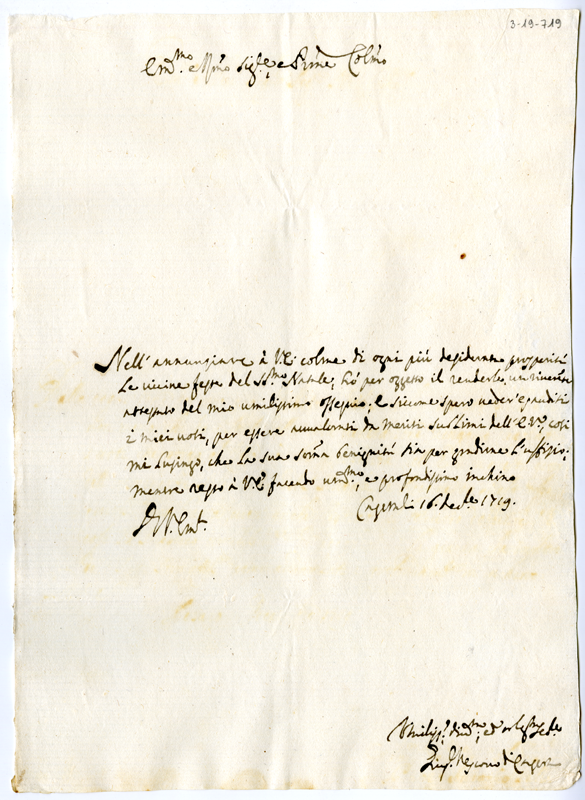 3-19-719
Em.mo e Rmo Sig.e, e Prne Colmo
Nell'annunziare à V.E. colme di ogni più desiderata prosperità
Le vicine feste del SS.mo Natale, hò per oggetto il renderle un riverente
attestato del mio umilissimo ossequio; e siccome spero veder esauditi
i miei voti, per essere avvalorati da meriti sublimi dell'E.V., così
mi lusingo, che la sua somã benignità sia per gradirne l'uffizio;
mentre resto à V.E. facendo um.mo, e profondissimo inchino
16. Dec.e 1719.
Di V. Em.
Umiliss.o, ed
Vescovo di